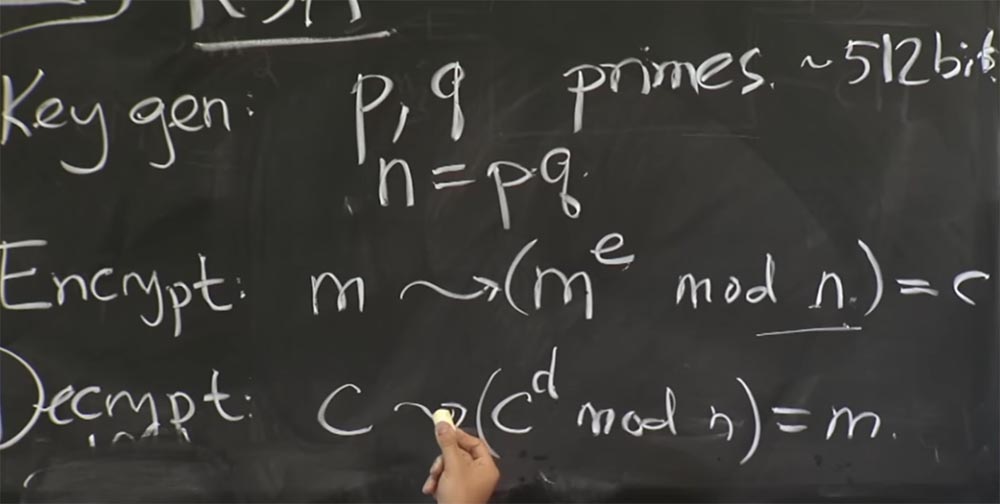 RSA
Key gen: p, q primes. ~512bit
n = pq.
Encrypt: m ⇝ (m^e mod n.) = c
Decrypt: c ⇝ (c^d mod n) = m.